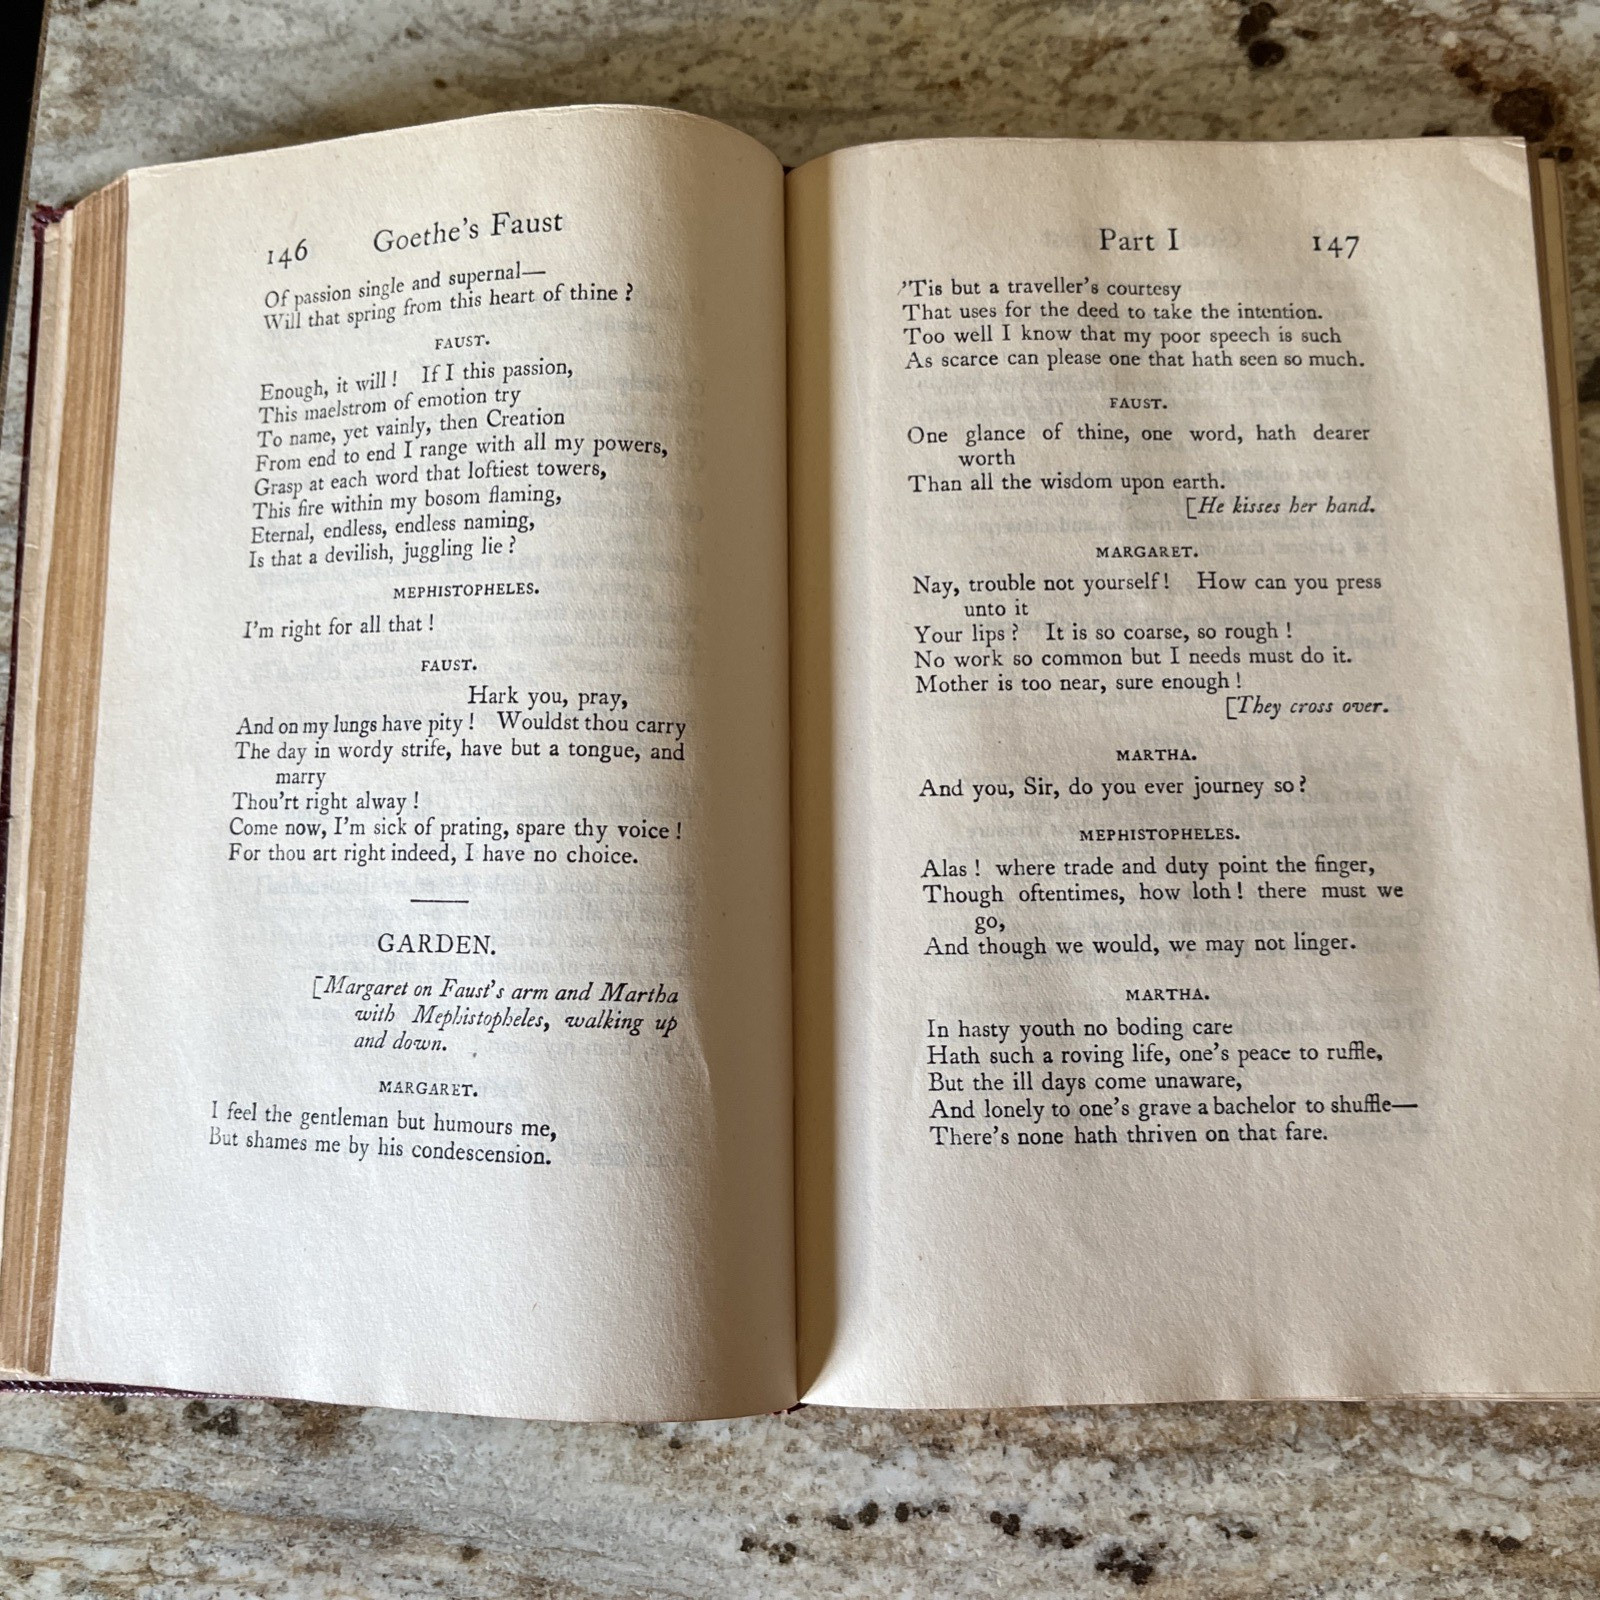 146 Goethe's Faust
Of passion single and supernal—
Will that spring from this heart of thine ?
FAUST.
Enough, it will ! If I this passion,
This maelstrom of emotion try
To name, yet vainly, then Creation
From end to end I range with all my powers,
Grasp at each word that loftiest towers,
This fire within my bosom flaming,
Eternal, endless, endless naming,
Is that a devilish, juggling lie ?
MEPHISTOPHELES.
I'm right for all that !
FAUST.
Hark you, pray,
And on my lungs have pity ! Wouldst thou carry
The day in wordy strife, have but a tongue, and
marry
Thou'rt right alway !
Come now, I'm sick of prating, spare thy voice !
For thou art right indeed, I have no choice.
GARDEN.
[Margaret on Faust's arm and Martha
with Mephistopheles, walking up
and down.
MARGARET.
I feel the gentleman but humours me,
But shames me by his condescension.
Part I 147
'Tis but a traveller's courtesy
That uses for the deed to take the intention.
Too well I know that my poor speech is such
As scarce can please one that hath seen so much.
FAUST.
One glance of thine, one word, hath dearer
worth
Than all the wisdom upon earth.
[He kisses her hand.
MARGARET.
Nay, trouble not yourself ! How can you press
unto it
Your lips ? It is so coarse, so rough !
No work so common but I needs must do it.
Mother is too near, sure enough !
[They cross over.
MARTHA.
And you, Sir, do you ever journey so ?
MEPHISTOPHELES.
Alas ! where trade and duty point the finger,
Though oftentimes, how loth ! there must we
go,
And though we would, we may not linger.
MARTHA.
In hasty youth no boding care
Hath such a roving life, one's peace to ruffle,
But the ill days come unaware,
And lonely to one's grave a bachelor to shuffle—
There's none hath thriven on that fare.